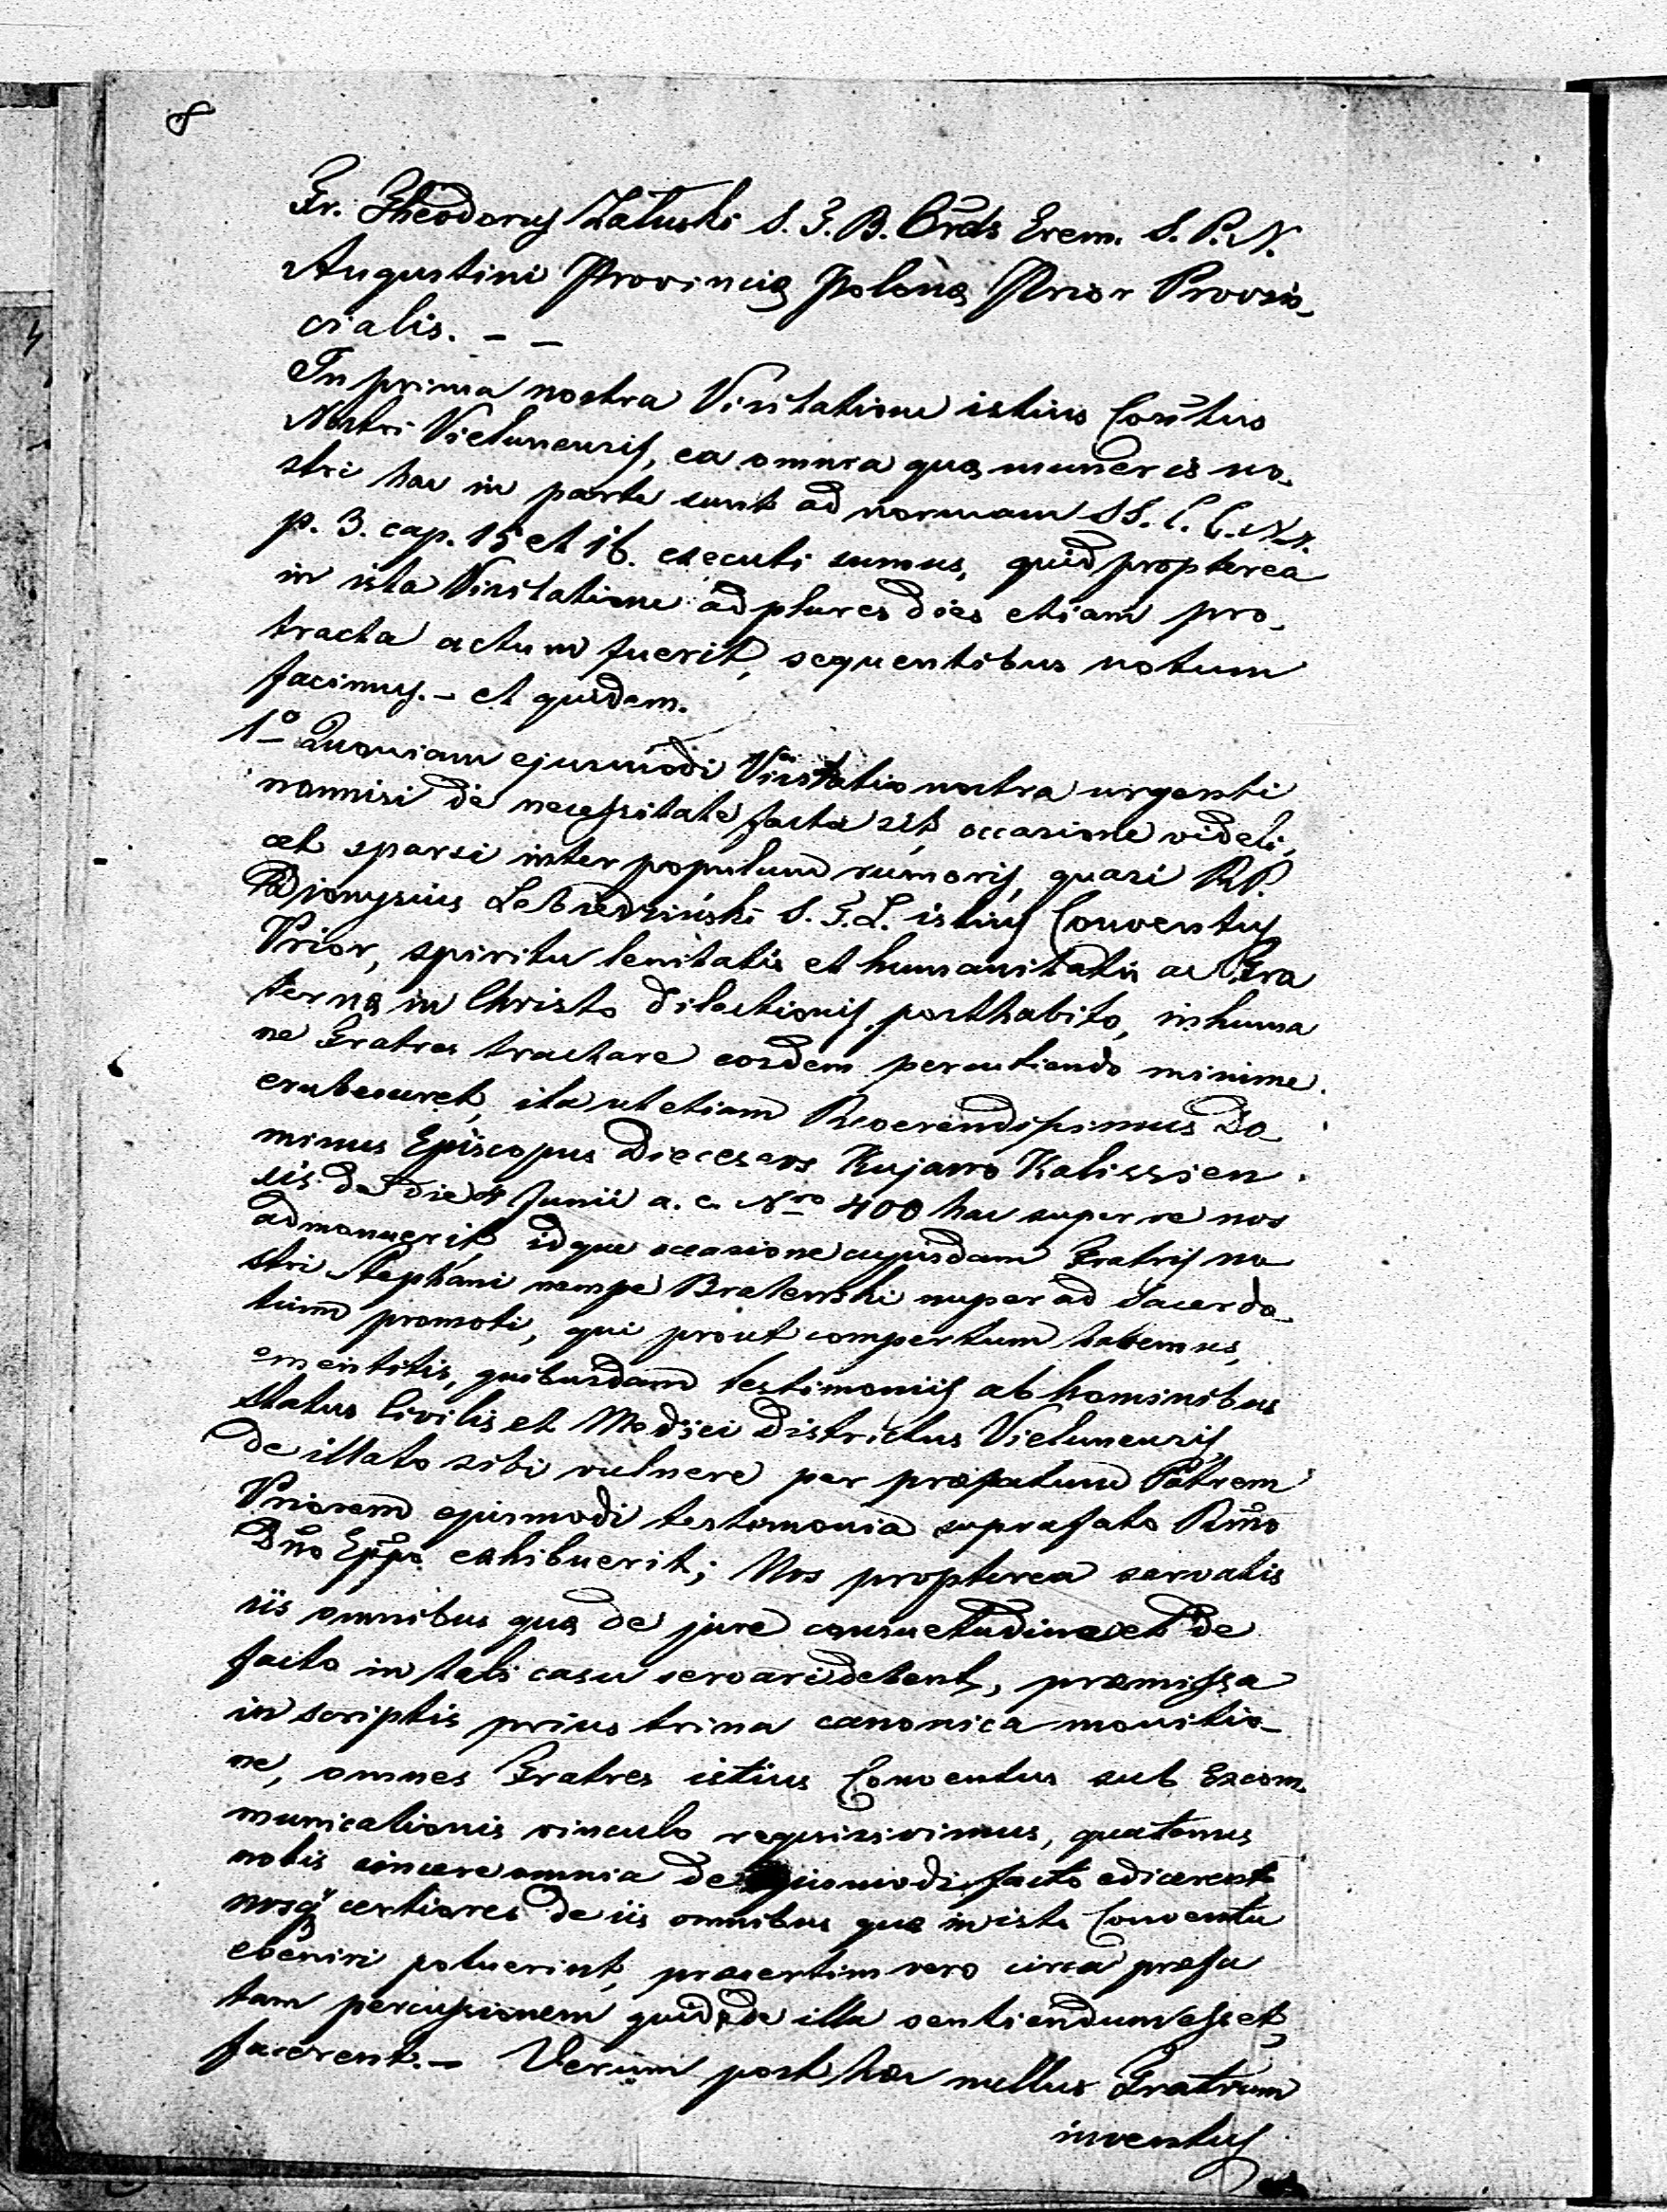 8
Fr. Theodorus Zatuski S. T. B. Ords Erem. S. P. N.
Augustini Provinciæ Polonæ Prior Provin-
cialis. - -
In prima nostra Visitatione istius Conṽtus
Nostri Vielunensis, ea omnia quæ muneris no-
stri hac in parte sunt ad normam SS. C. C. N. N.
p. 3. cap. 15 et 16. executi sumus, quid propterea
in ista Visitatione ad plures dies etiam pro-
tracta actum fuerit, sequentibus notum
facimus. - et quidem.
1º Quoniam ejusmodi Visitatio nostra urgenti
nonnisi de necessitate facta sit, occasione videli-
cet sparsi inter populum rumoris, quasi R. P.
Dionysius Lebiedzinski S. T. L. istius Conventus
Prior, spiritu lenitatis et humanitatis ac Fra
ternæ in Christo dilectionis posthabito, inhuma
ne Fratres tractare eosdem percutiendo minime
erubesceret, ita ut etiam Reverendissimus Do-
minus Episcopus Diecesers Kujawo Kalissien-
sis de die 4 Junii a. c. Nro 400 hac super re nos
admonuerit, idque occasione cujusdam Fratris no-
stri Stephani nempe Bratewski nuper ad Sacerdo-
tium promoti, qui prout compertum habemus,
ementitis, quibusdam testimoniis ab hominibus
status Civilis et Medici Districtus Vielunensis,
de illato sibi vulnere per præfatum Patrem
Priorem ejusmodi testimonia suprafato Rmo
Dno Eppo exhibuerit; Nos propterea servatis
iis omnibus quæ de jure consuetudine et de
facto in tali casu servari debent, præmissa
in scriptis prius trina canonica monitio-
ne, omnes Fratres istius Conventus sub Excom-
municationis vinculo requisivimus, quatenus
nobis sincere omnia de ejusmodi facto edicerent
nosq́ certiores de iis omnibus quæ in isto Conventu
eveniri potuerint, præsertim vero circa præfa
tam percussionem quid de illa sentiendum esset,
facerent. - Verum post hæc nullus Fratrum
inventus